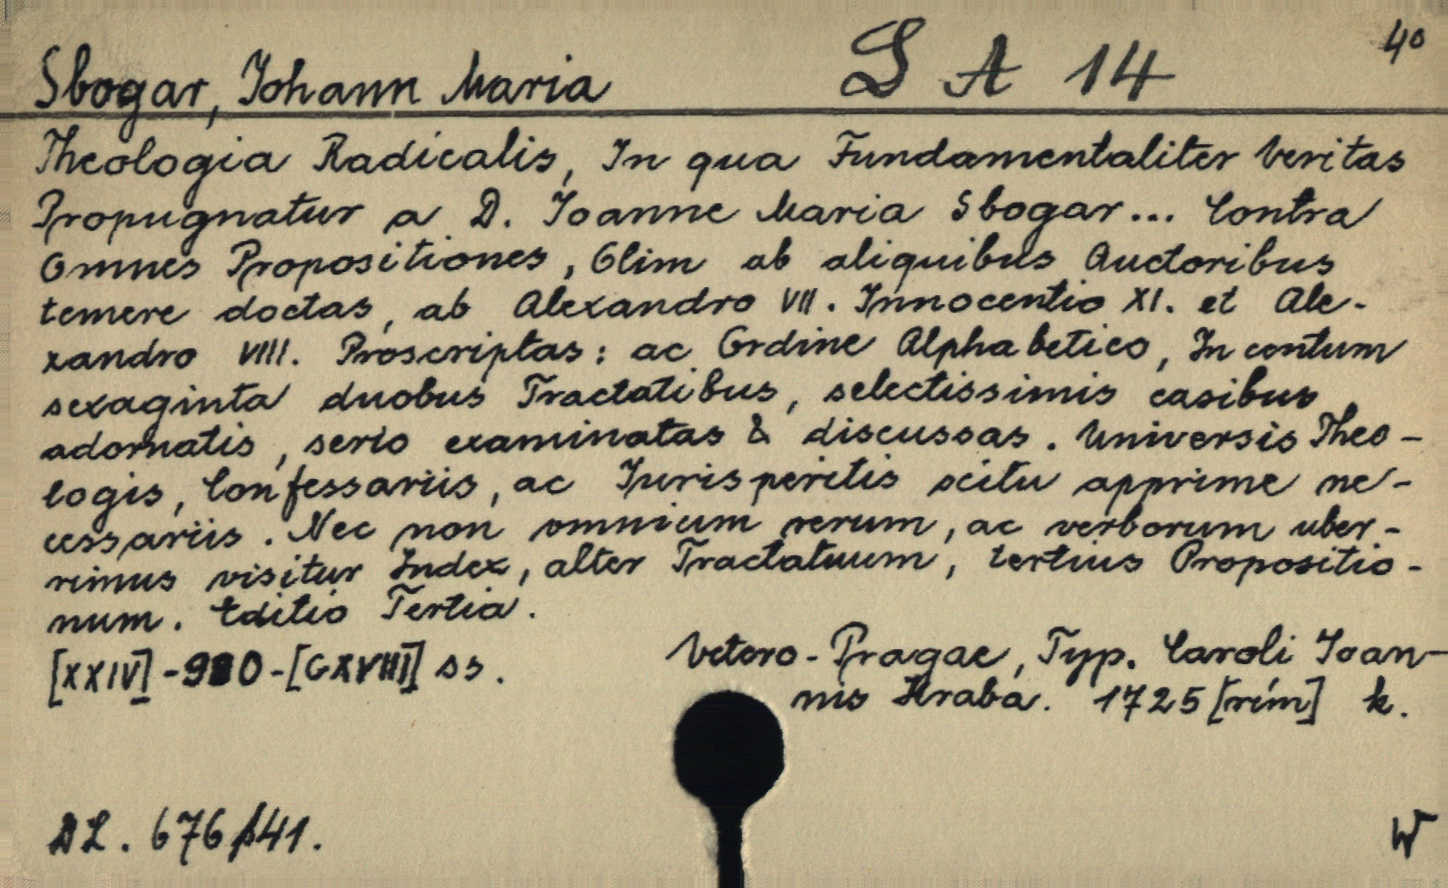 Sbogar, Johann Maria S A 14 4o
Theologia Radicalis, In qua Fundamentaliter Veritas
Propugnatur a D. Ioanne Maria Sbogar... Contra
Omnes Propositiones, Olim ab aliquibus Auctoribus
temere doctas, ab Alexandro VII. Innocentio XI. et Ale-
xandro VIII. Proscriptas: ac Ordine Alphabetico, In centum
sexaginta duobus Tractatibus, selectissimis casibus
adornatis, serio examinatas & discussas. Universis Theo-
logis, Confessariis, ac Iurisperitis scitu apprime ne-
cessariis. Nec non omnium rerum, ac verborum uber-
rimus visitur Index, alter Tractatuum, tertius Propositio-
num. Editio Tertia.
[XXIV]-980-[CXVIII] ss.
Vetero-Pragae, Typ. Caroli Ioan-
nis Hraba. 1725 [rím] k.
DL. 676/41.
W